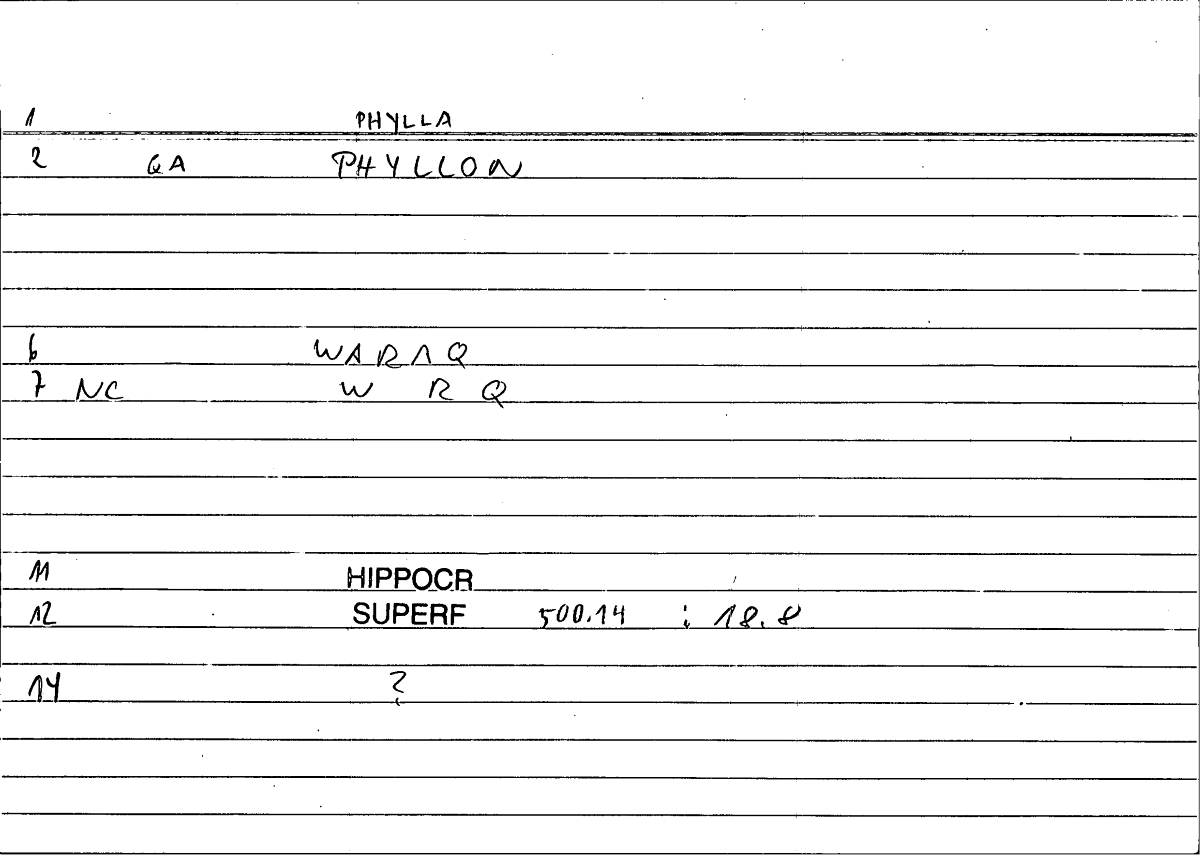 1 PHYLLA
2 QA PHYLLON
6 WARAQ
7 NC W R Q
11 HIPPOCR
12 SUPERF 500.14 ; 18.8
14 ?